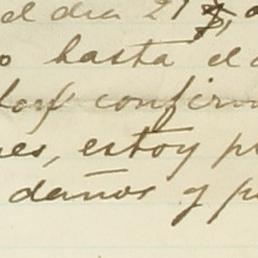 el dia 21
o hasta el
confirm
es, estoy p
daños y p